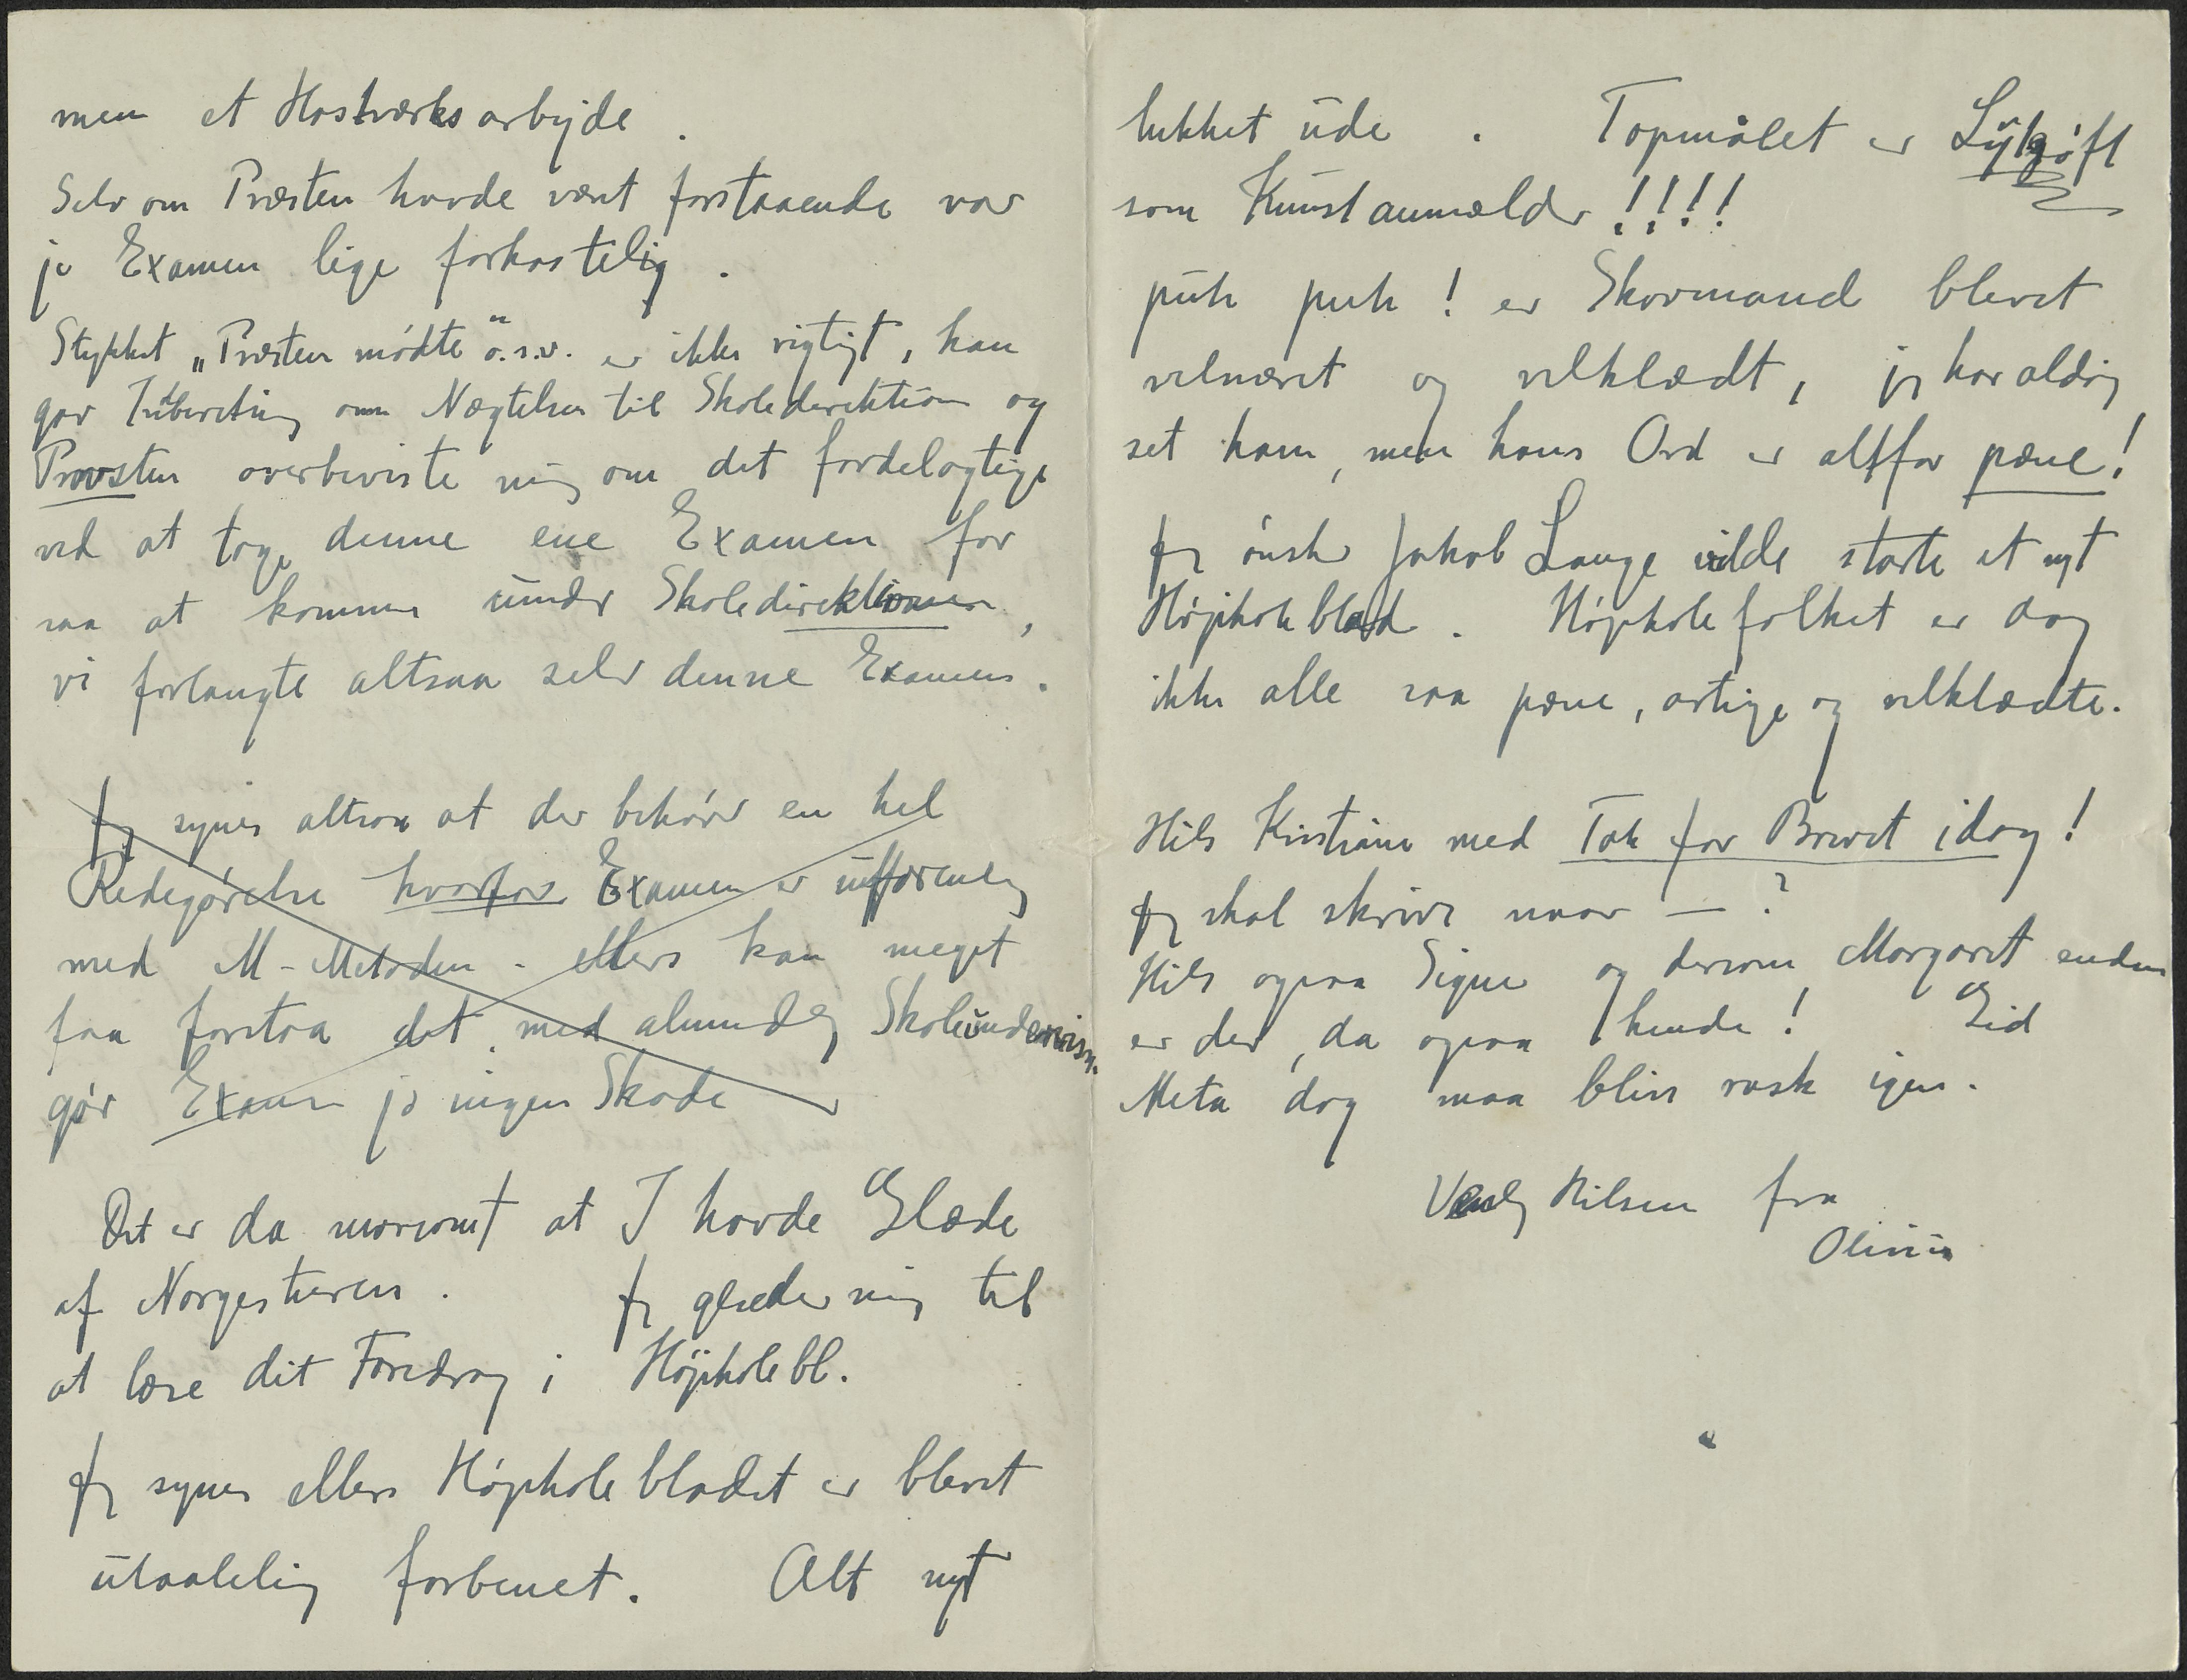 men et Hastværksarbejde.
Selv om Præsten havde været forstaaende var
jo Examen lige forkastelig.
Stykket „Præsten mødte“ o.s.v. er ikke rigtigt, han
gør Indberetning om Nægtelsen til Skoledirektion og
Provsten overbeviste mig om det fordelagtige
ved at tage denne ene Examen for
saa at komme under Skoledirektionen,
vi forlangte altsaa selv denne Examen.
Jeg synes altsaa at der behøver en hel
Redegørelse hvorfor Examen er uforenelig
med M-Metoden - ellers kan meget
faa forstaa det, med almindelig Skoleundervisn.
gør Examen jo ingen Skade
Det er da morsomt at I havde Glæde
af Norgesturen. Jeg glæder mig til
at læse dit Foredrag i Højskolebl.
Jeg synes ellers Højskolebladet er blevet
utaalelig forbenet. Alt nyt
lukket ude. Topmålet er Lykgøft
som Kunstanmelder!!!!
puh puh! er Skovmand blevet
velnæret og velklædt, jeg har aldrig
set ham, men hans Ord er altfor pæne!
Jeg ønsker Jakob Lange vilde starte et nyt
Højskoleblad. Højskolefolket er dog
ikke alle saa pæne, artige og velklædte.
Hils Kristiane med Tak for Brevet idag!
Jeg skal skrive naar — ?
Hils ogsaa Signe og dersom Margaret endnu
er der, da ogsaa hende! Gid
Meta dog maa blive rask igen.
Venlig Hilsen fra
Olivia